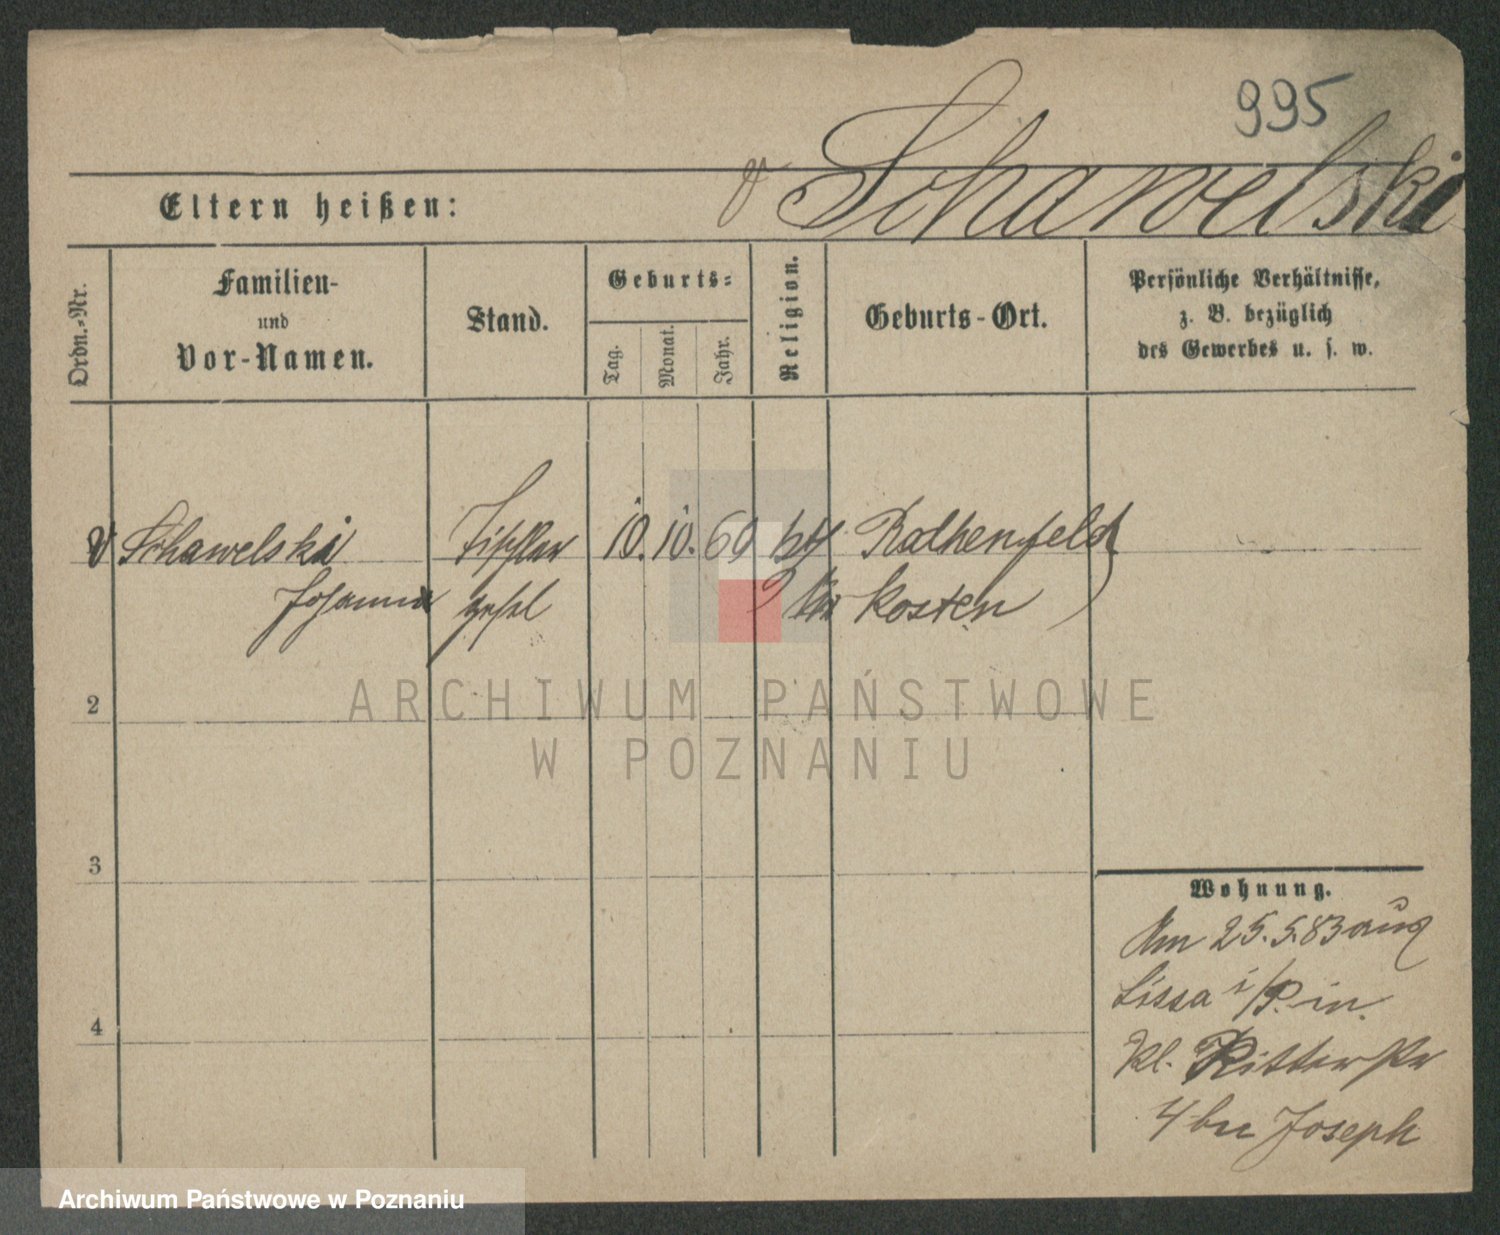 995
v Schawelski
Eltern heißen:
Ordn.-Nr.
Familien-
und
Vor-Namen.
Stand.
Geburts-
Tag.
Monat.
Jahr.
Religion.
Geburts-Ort.
Persönliche Verhältnisse,
z. B. bezüglich
des Gewerbes u. s. w.
v Schawelski Tischler 10. 10. 60 Rathenfeld
Johann gesel Kr Kosten
2
ARCHIWUM PAŃSTWOWE
W POZNANIU
3
Wohnung.
Am 25.5.83 aus
Lissa i/P. in
Kl. Ritterstr
4 bei Joseph
4
Archiwum Państwowe w Poznaniu